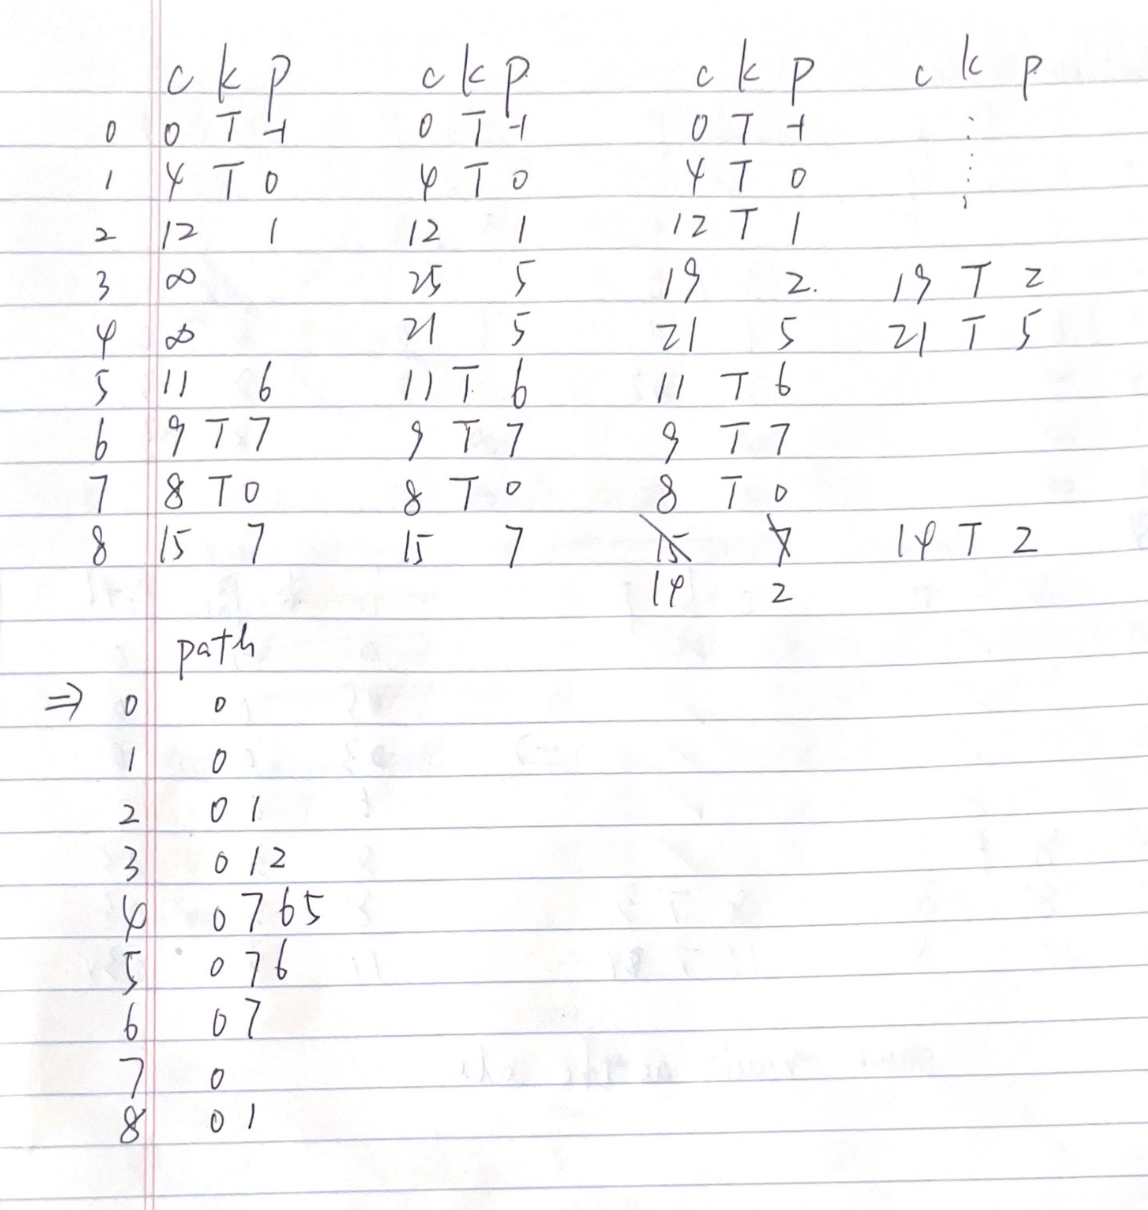 c k p c k p c k p c k p
0 0 T -1 0 T -1 0 T -1 ⋮
1 4 T 0 4 T 0 4 T 0 ⋮
2 12 1 12 1 12 T 1
3 ∞ 25 5 19 2. 19 T 2
4 ∞ 21 5 21 5 21 T 5
5 11 6 11 T 6 11 T 6
6 9 T 7 9 T 7 9 T 7
7 8 T 0 8 T 0 8 T 0
8 15 7 15 7 15 7 14 T 2
14 2
path
⇒ 0 0
1 0
2 0 1
3 0 1 2
4 0 7 6 5
5 0 7 6
6 0 7
7 0
8 0 1